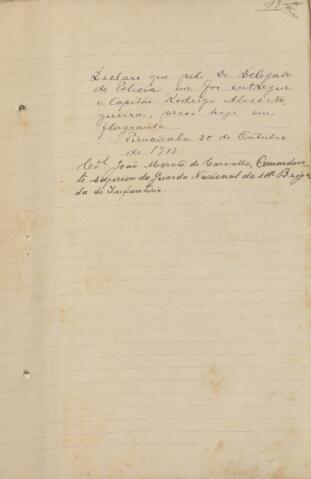 13
Declaro que pelo Dr. Delegado
de Policia, me foi entregue
o Capitão Rodrigo Alves No-
gueira, preso hoje em
flagrante.
Piracicaba 30 de Outubro
de 1913.
Cel João Morato de Carvalho, Commandan-
te superior da Guarda Nacional da Briga-
da de Infanteria.